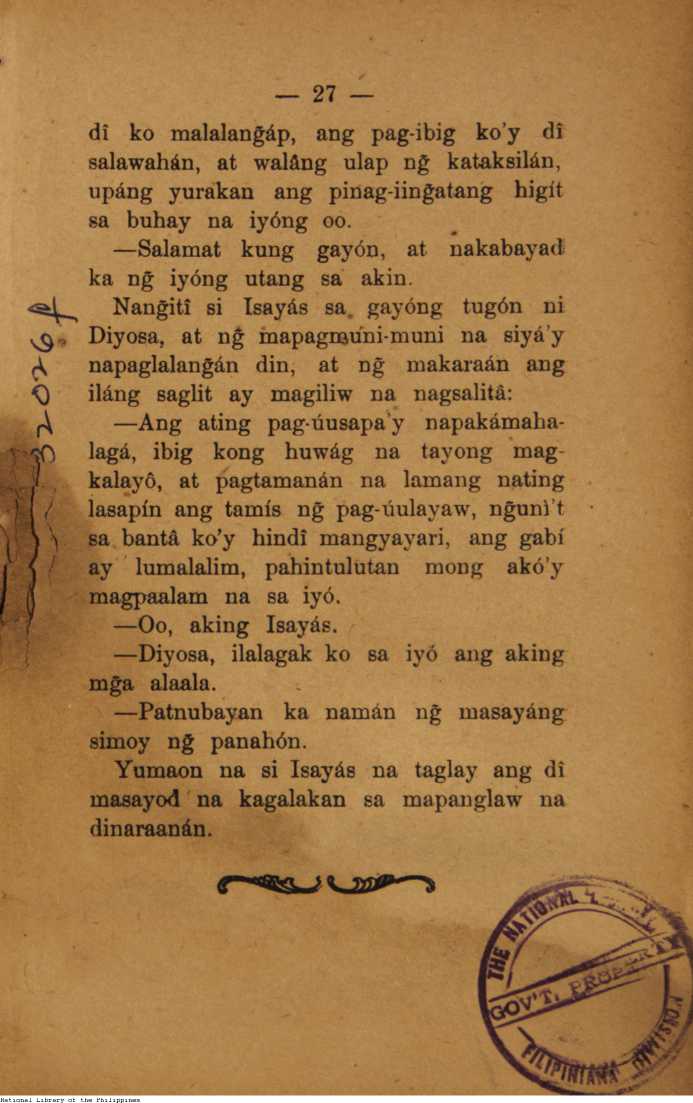 — 27 —
dî ko malalang̃áp, ang pag-ibig ko'y dî
salawahán, at waláng ulap ng̃ kataksilán,
upáng yurakan ang pinag-iing̃atang higít
sa buhay na iyóng oo.
—Salamat kung gayón, at nakabayad
ka ng̃ iyóng utang sa akin.
Nang̃itî si Isayás sa gayóng tugón ni
Diyosa, at ng̃ mapagmuni-muni na siyá'y
napaglalang̃án din, at ng̃ makaraán ang
iláng saglit ay magiliw na nagsalitâ:
—Ang ating pag-úusapa'y napakámaha-
lagá, ibig kong huwág na tayong mag-
kalayô, at pagtamanán na lamang nating
lasapín ang tamís ng̃ pag-úulayaw, ng̃unì't
sa bantâ ko'y hindî mangyayari, ang gabí
ay lumalalim, pahintulutan mong akó'y
magpaalam na sa iyó.
—Oo, aking Isayás.
—Diyosa, ilalagak ko sa iyó ang aking
mg̃a alaala.
—Patnubayan ka namán ng̃ masayáng
simoy ng̃ panahón.
Yumaon na si Isayás na taglay ang dî
masayod na kagalakan sa mapanglaw na
dinaraanán.
THE NATIONAL
GOV'T. PROPERTY
FILIPINIANA DIVISION
National Library of the Philippines